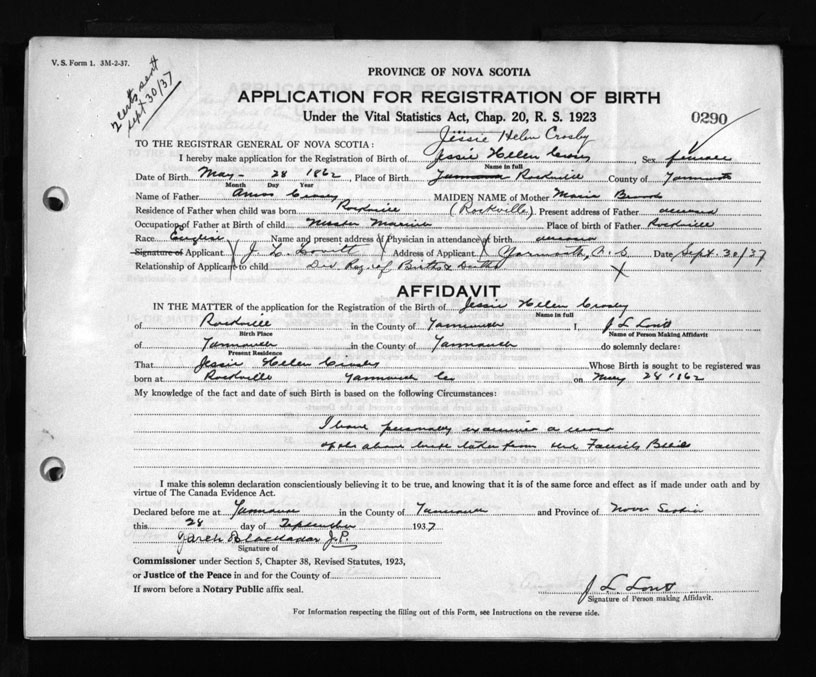 V. S. Form 1. 3M-2-37.
2 certs sent
Sept 30/37
PROVINCE OF NOVA SCOTIA
APPLICATION FOR REGISTRATION OF BIRTH
Under the Vital Statistics Act, Chap. 20, R. S. 1923
0290
Jessie Helen Crosby
TO THE REGISTRAR GENERAL OF NOVA SCOTIA:
I hereby make application for the Registration of Birth of Jessie Hellen Crosby, Sex female
Name in full
Date of Birth May 28 1862, Place of Birth Yarmouth Rockville County of Yarmouth
Month Day Year
Name of Father Amos Crosby MAIDEN NAME of Mother Maria
Residence of Father when child was born Rockville (Rockville) Present address of Father deceased
Occupation of Father at Birth of child Master Mariner Place of birth of Father Rockville
Race English Name and present address of Physician in attendance at birth deceased
Signature of Applicant J. L. Lovitt Address of Applicant Yarmouth, N.S. Date Sept. 30/37
Relationship of Applicant to child Div. Reg. of Births & Deaths
AFFIDAVIT
IN THE MATTER of the application for the Registration of the Birth of Jessie Hellen Crosby
Name in full
of Rockville in the County of Yarmouth I, J L Lovitt
Birth Place Name of Person Making Affidavit
of Yarmouth in the County of Yarmouth do solemnly declare:
Present Residence
That Jessie Hellen Crosby Whose Birth is sought to be registered was
born at Rockville Yarmouth Co on May 28 1862
My knowledge of the fact and date of such Birth is based on the following Circumstances:
I have personally examined a record
of the above birth taken from the Family Bible
I make this solemn declaration conscientiously believing it to be true, and knowing that it is of the same force and effect as if made under oath and by
virtue of The Canada Evidence Act.
Declared before me at Yarmouth in the County of Yarmouth and Province of Nova Scotia
this 28 day of September 1937
Blackadar J.P.
Signature of
Commissioner under Section 5, Chapter 38, Revised Statutes, 1923,
or Justice of the Peace in and for the County of
If sworn before a Notary Public affix seal.
J L Lovitt
Signature of Person making Affidavit.
For Information respecting the filling out of this Form, see Instructions on the reverse side.